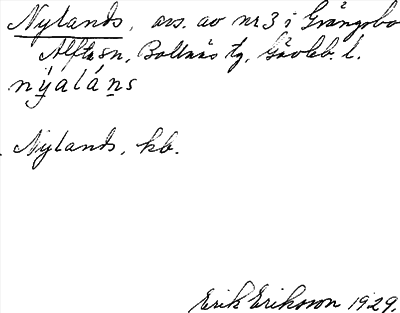 Nylands, ars. av nr 3 i Grängsbo
Alfta sn, Bollnäs tg, Gävleb. l.
nýaláṇs
Nylands, kb.
Erik Eriksson 1929.